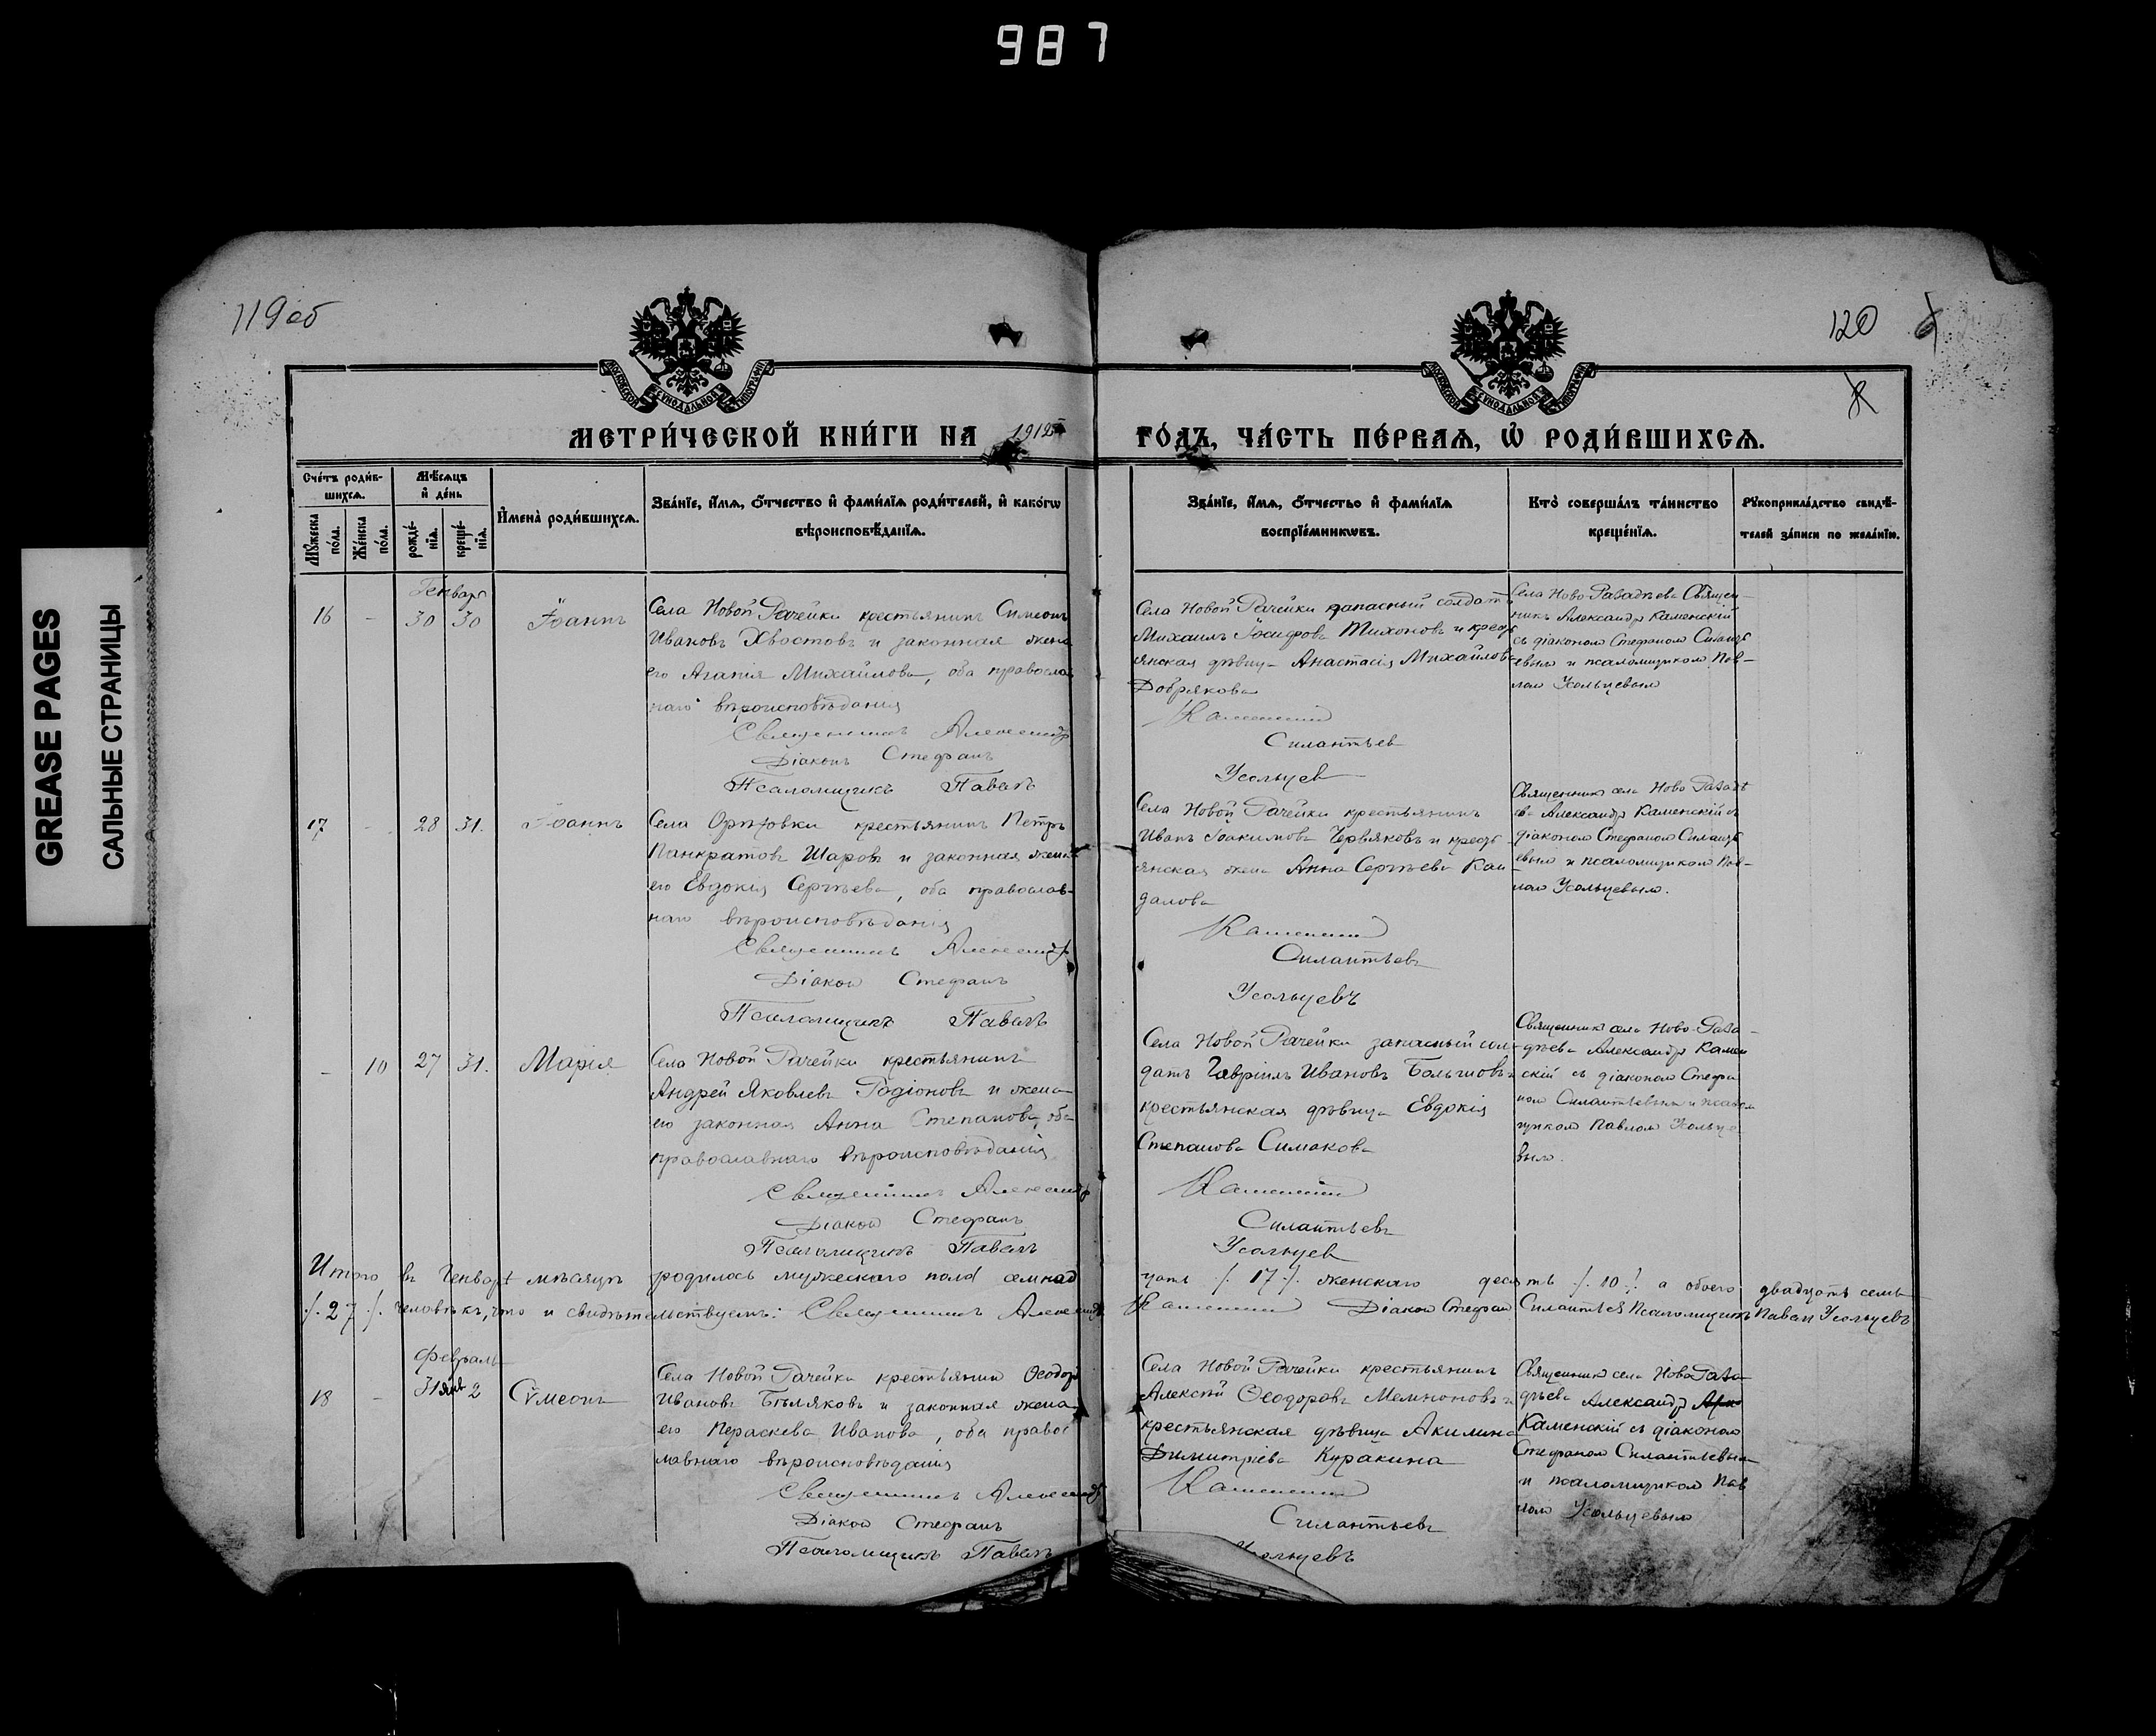 987
GREASE PAGES
САЛЬНЫЕ СТРАНИЦЫ
119об
120
МОСКОВСКОЙ СѴНОДАЛЬНОЙ ТИПОГРАФІИ
МОСКОВСКОЙ СѴНОДАЛЬНОЙ ТИПОГРАФІИ
МЕТРИ́ЧЕСКОЙ КНИ́ГИ НА 1912
ГО́ДЪ, ЧА́СТЬ ПЕ́РВАѦ, Ѡ҆ РОДИ́ВШИХСѦ.
Сче́тъ роди́в-
шихсѧ.
Мꙋ́жеска
по́ла.
Же́нска
по́ла.
Мѣ́сѧцъ
и҆ де́нь
рожде́-
нїѧ.
креще́-
нїѧ.
И҆мена̀ роди́вшихсѧ.
Зва́нїе, и҆́мѧ, ѻ҆́тчество и҆ фами́лїѧ роди́телей, и҆ како́гѡ
вѣроисповѣ́данїѧ.
Зва́нїе, и҆́мѧ, ѻ҆́тчество и҆ фами́лїѧ
воспрїе́мникѡвъ.
Кто̀ соверша́лъ та́инство
креще́нїѧ.
Рꙋкоприкла́дство свидѣ́-
телей за́писи по жела́нїю.
Генварь
16 - 30 30 Іоаннъ
Села Новой Рачейки крестьянинъ Симеонъ
Ивановъ Хвостовъ и законная жена
его Агапія Михайлова, оба православ
наго вѣроисповѣданія
Священникъ Александр
Діаконъ Стефанъ
Псаломщикъ Павелъ
Села Новой Рачейки запасный солдатъ
Михаилъ Іосифовъ Тихоновъ и кресть
янская дѣвица Анастасія Михайлова
Добрякова
Каменскій
Силантьев
Усольцев
Села Ново-Разадѣева Священ-
никъ Александр Каменскій
съ діаконом Стефаном Силанть
евым и псаломщиком Пав-
лом Усольцевым
17 - 28 31. Іоаннъ
Села Орѣховки крестьянинъ Петръ
Панкратовъ Шаровъ и законная жена
его Евдокія Сергѣева, оба православ-
наго вѣроисповѣданія
Священникъ Александр
Діакон Стефанъ
Псаломщикъ Павелъ
Села Новой Рачейки крестьянинъ
Иванъ Іоакимовъ Червяковъ и кресть
янская жена Анна Сергѣева Кан-
далова
Каменскій
Силантьевъ
Усольцевъ
Священник села Ново Разадѣ
ева Александр Каменскій съ
діаконом Стефаном Силанть
евым и псаломщиком Пав-
лом Усольцевым.
- 10 27 31. Марія
Села Новой Рачейки крестьянинъ
Андрей Яковлевъ Родіоновъ и жена
его законная Анна Степанова, оба
православнаго вѣроисповѣданія
Священникъ Александр
Діакон Стефанъ
Псаломщикъ Павелъ
Села Новой Рачейки запасный сол-
датъ Гавріилъ Ивановъ Большовъ и
крестьянская дѣвица Евдокія
Степанова Симакова
Каменскій
Силантьевъ
Усольцев
Священник села Ново-Раза-
дѣева Александр Камен
скій съ діаконом Стефа
ном Силантьевым и псалом
щиком Павлом Усольце
вым.
Итого въ Генварѣ мѣсяцѣ родилось мужескаго пола семнад
цать /. 17 ./. женскаго десять ./. 10 ./. а обоего двадцать семь
./. 27 ./. человѣкъ, что и свидѣтельствуемъ: Священникъ Александр
Каменскій Діакон Стефан Силантьев Псаломщикъ Павел Усольцевъ
Февраль
18 - 31 янв 2 Сѵмеонъ
Села Новой Рачейки крестьянин Ѳеодоръ
Ивановъ Бѣляковъ и законная жена
его Параскева Иванова, оба правос
лавнаго вѣроисповѣданія
Священникъ Александр
Діакон Стефанъ
Псаломщикъ Павелъ
Села Новой Рачейки крестьянинъ
Алексѣй Ѳеодоровъ Мемноновъ и
крестьянская дѣвица Акилина
Димитріева Куракина
Каменскій
Силантьевъ
Усольцевъ
Священник села Ново Раза-
дѣева Александр
Каменскій съ діаконом
Стефаном Силантьевым
и псаломщиком Пав
лом Усольцевым